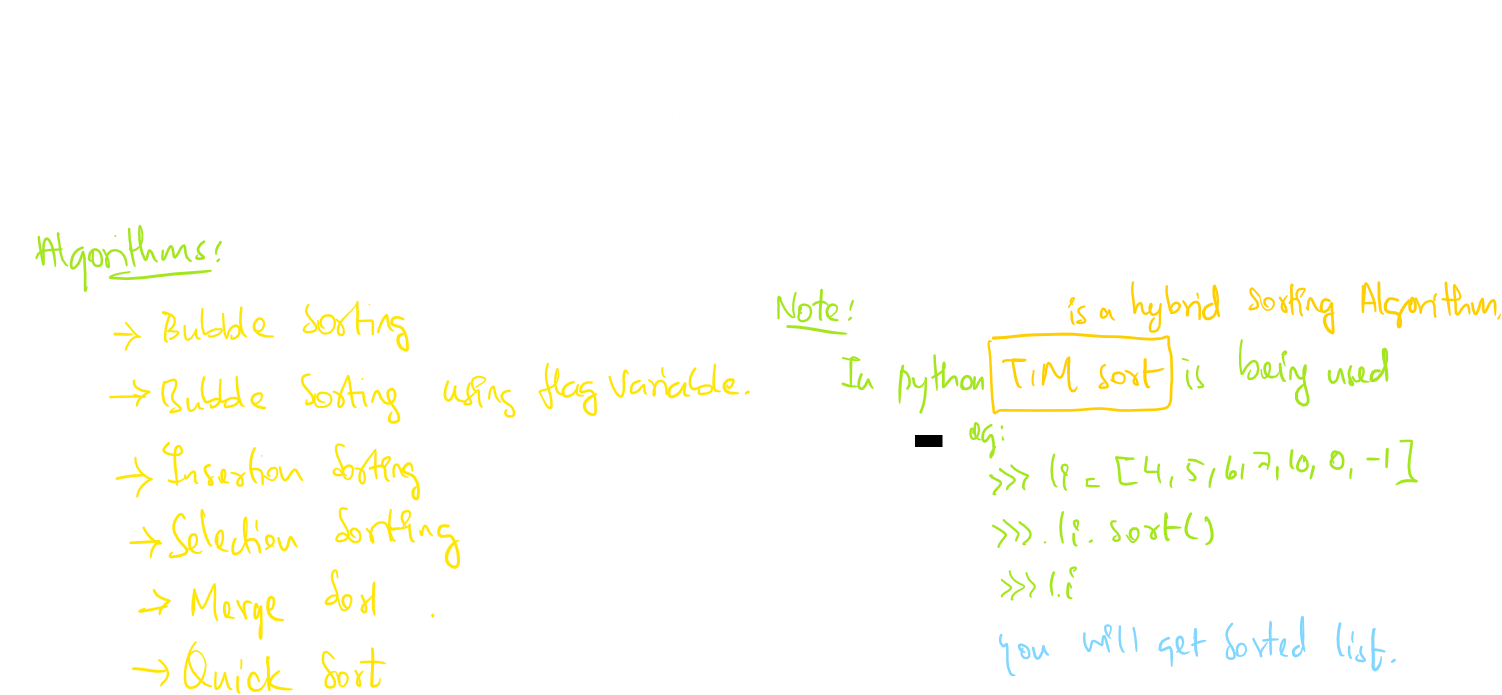 Algorithms:
→ Bubble Sorting
→ Bubble Sorting using flag Variable.
→ Insertion Sorting
→ Selection Sorting
→ Merge Sort .
→ Quick Sort
Note:
is a hybrid Sorting Algorithm.
In python TiM sort is being used
eg:
>>> li = [4, 5, 6, 7, 10, 0, -1]
>>> li. sort()
>>> li
you will get Sorted list.